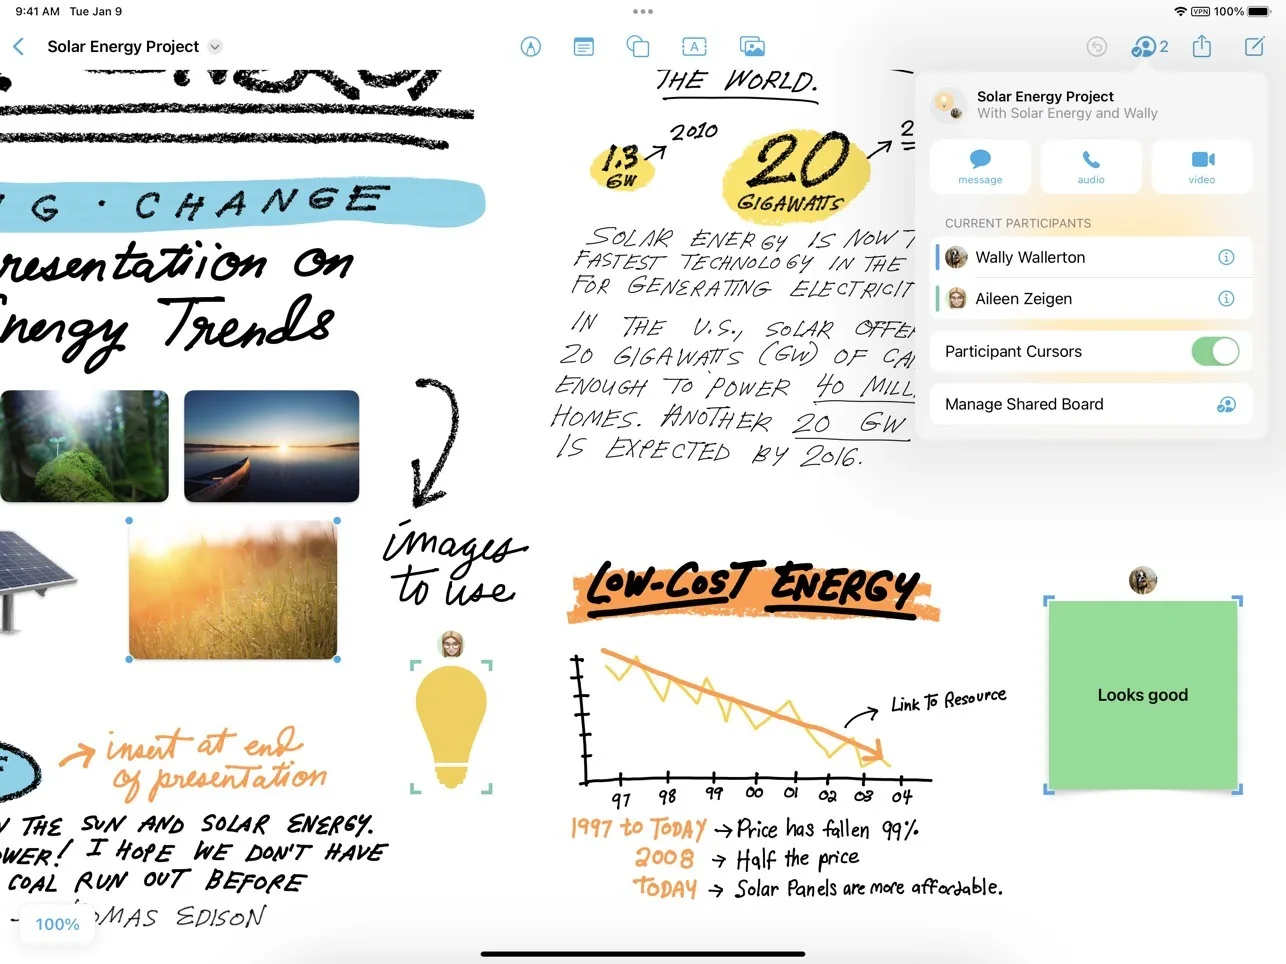 9:41 AM Tue Jan 9
VPN 100%
Solar Energy Project
A
2
THE WORLD.
2010
1.3
GW
20
GIGAWATTS
2
G · CHANGE
resentatiion on
nergy Trends
SOLAR ENERGY IS NOW T
FASTEST TECHNOLOGY IN THE
FOR GENERATING ELECTRICIT
IN THE U.S., SOLAR OFFER
20 GIGAWATTS (GW) OF CA
ENOUGH TO POWER 40 MILL
HOMES. ANOTHER 20 GW
IS EXPECTED BY 2016.
Solar Energy Project
With Solar Energy and Wally
message
audio
video
CURRENT PARTICIPANTS
Wally Wallerton
Aileen Zeigen
Participant Cursors
Manage Shared Board
images
to use
insert at end
of presentation
THE SUN AND SOLAR ENERGY.
OWER! I HOPE WE DON'T HAVE
COAL RUN OUT BEFORE
OMAS EDISON
100%
LOW-COST ENERGY
Link To Resource
97 98 99 00 01 02 03 04
1997 to TODAY → Price has fallen 99%
2008 → Half the price
TODAY → Solar Panels are more affordable.
Looks good